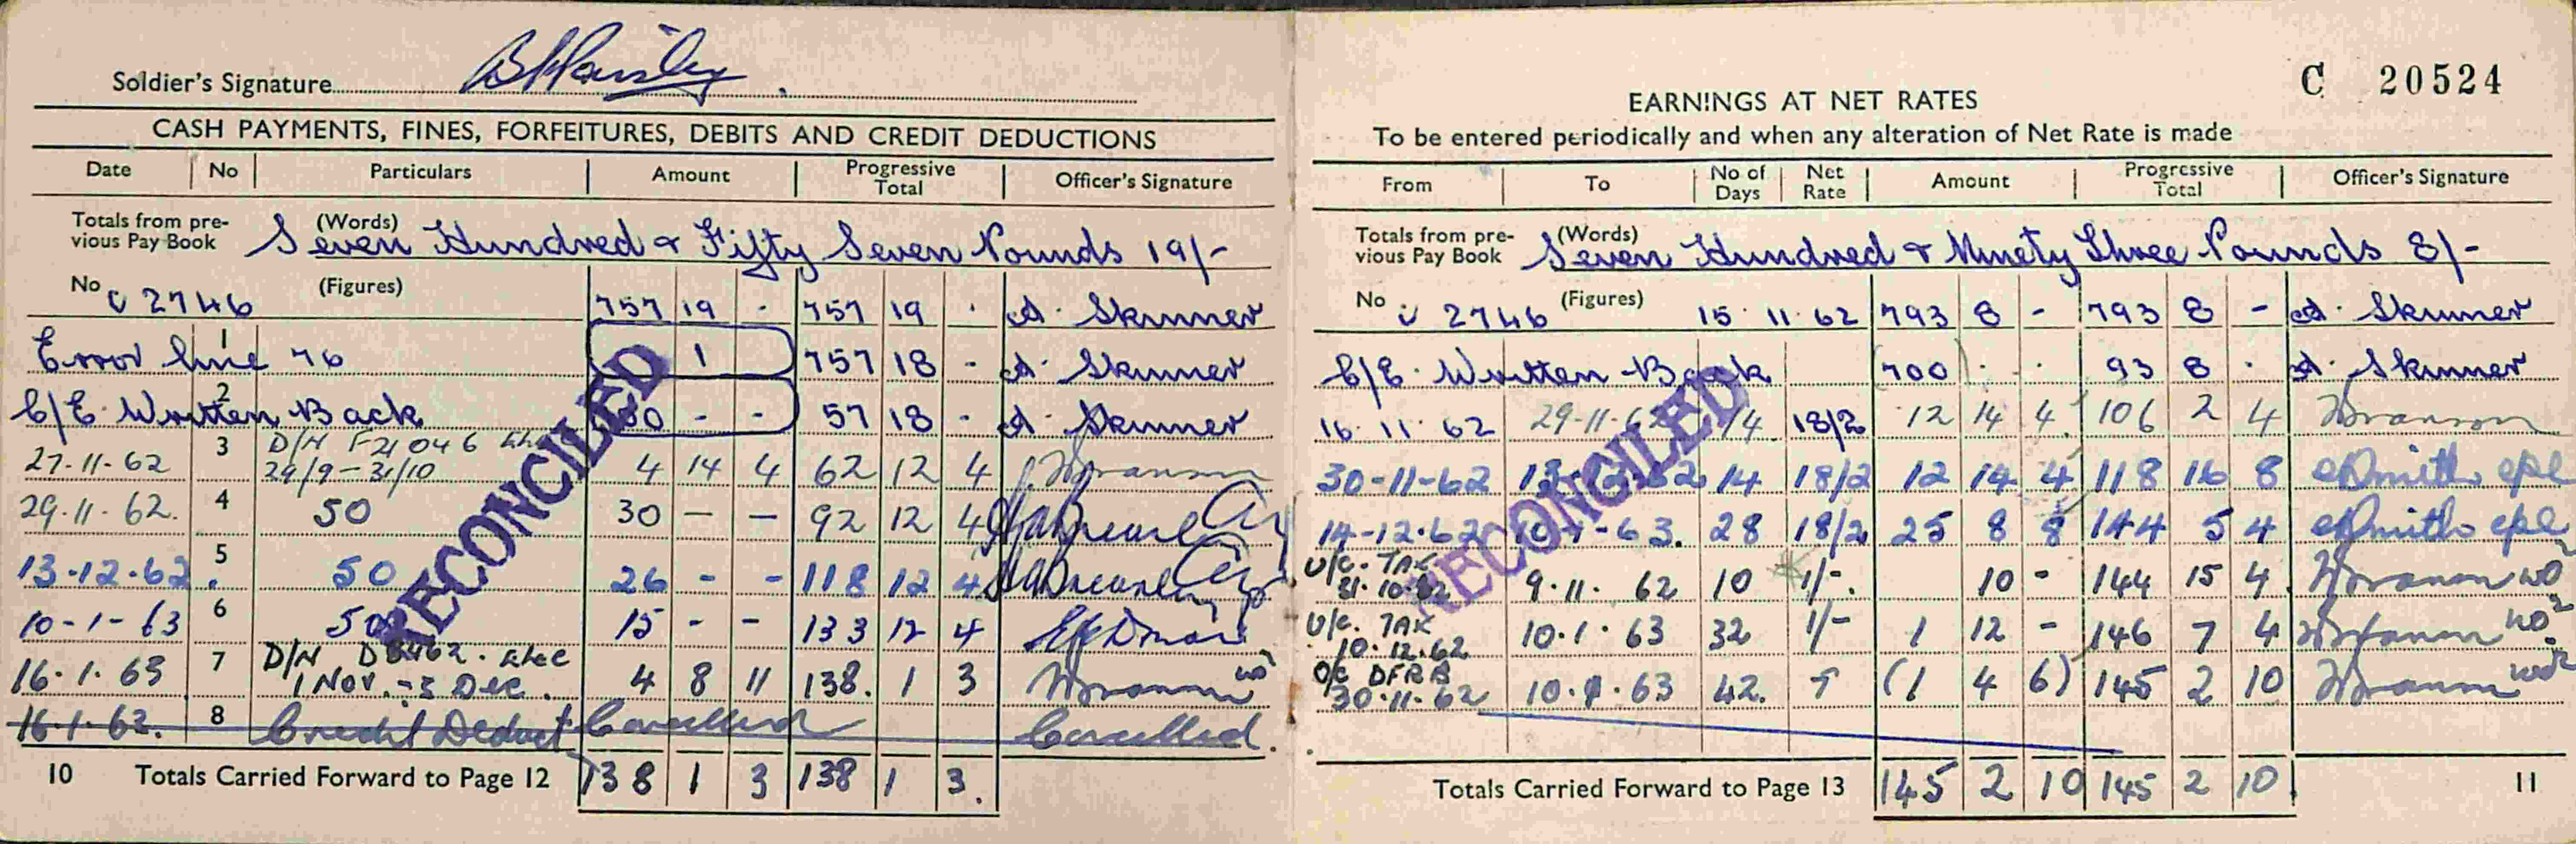 Soldier's Signature
CASH PAYMENTS, FINES, FORFEITURES, DEBITS AND CREDIT DEDUCTIONS
Date No Particulars Amount Progressive Total Officer's Signature
Totals from pre-vious Pay Book (Words) Seven Hundred & Fifty Seven Pounds 19/-
No C 2746 (Figures) 757 19 - 757 19 . A. Skinner
Error line 76 1 1 757 18 - A. Skinner
C/E Written Back 2 - - 57 18 - A. Skinner
27.11.62 3 D/N F21046 29/9-31/10 4 14 4 62 12 4
29.11.62. 4 50 30 — — 92 12 4
13.12.62. 5 50 26 - - 118 12 4
10-1-63 6 50 15 - - 133 12 4
16.1.63 7 D/N 1 Nov.-3 Dec. 4 8 11 138. 1 3
16.1.63. 8 Credit Deduct Cancelled Cancelled.
10 Totals Carried Forward to Page 12 138 1 3 138 1 3.
RECONCILED
C 20524
EARNINGS AT NET RATES
To be entered periodically and when any alteration of Net Rate is made
From To No of Days Net Rate Amount Progressive Total Officer's Signature
Totals from pre-vious Pay Book (Words) Seven Hundred & Ninety Three Pounds 8/-
No C 2746 (Figures) 15 11 62 793 8 - 793 8 - A. Skinner
C/E Written Back (700) . . 93 8 . A. Skinner
16.11.62 29-11-62 14 18/2 12 14 4 106 2 4
30-11-62 13-12-62 14 18/2 12 14 4 118 16 8
14-12-62 10-1-63. 28 18/2 25 8 8 144 5 4
U/C. TAX 31.10.62 9.11.62 10 1/-. 10 - 144 15 4
U/C. TAX 10.12.62 10.1.63 32 1/- 1 12 - 146 7 4
O/C DFRB 30.11.62 10.1.63 42. 7 (1 4 6) 145 2 10
Totals Carried Forward to Page 13 145 2 10 145 2 10 11
RECONCILED